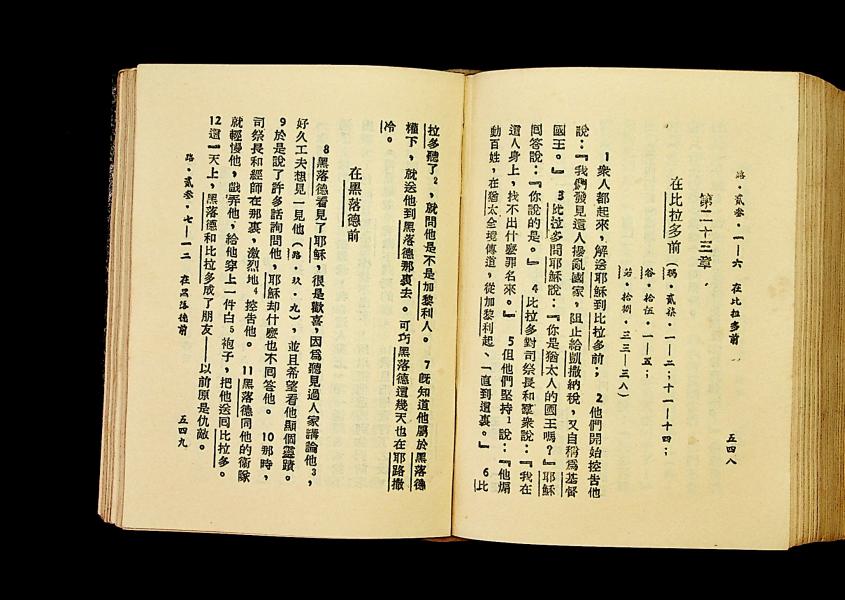 路·貳叄·一—六 在比拉多前
五四八
第二十三章
在比拉多前(瑪·貳柒·一—二；十一—十四；
谷·拾伍·一—五；
若·拾捌·三三—三八)
1衆人都起來，解送耶穌到比拉多前； 2他們開始控告他
說：『我們發見這人擾亂國家，阻止給凱撒納稅，又自稱爲基督
國王。』 3比拉多問耶穌說：『你是猶太人的國王嗎？』耶穌
囘答說：『你說的是。』 4比拉多對司祭長和羣衆說：『我在
這人身上，找不出什麽罪名來。』 5但他們堅持1說：『他煽
動百姓，在猶太全境傳道，從加黎利起、一直到這裏。』 6比
拉多聽了2，就問他是不是加黎利人。 7旣知道他屬於黑落德
權下，就送他到黑落德那裏去。可巧黑落德這幾天也在耶路撒
冷。
在黑落德前
8黑落德看見了耶穌，很是歡喜，因爲聽見過人家講論他3，
好久工夫想見一見他(路·玖·九)，並且希望看他顯個靈蹟。
9於是說了許多話詢問他，耶穌却什麽也不囘答他。 10那時，
司祭長和經師在那裏，激烈地4控告他。 11黑落德同他的衛隊
就輕慢他，戲弄他，給他穿上一件白5袍子，把他送囘比拉多。
12這一天上，黑落德和比拉多成了朋友——以前原是仇敵。
路·貳叄·七—一二 在黑落德前
五四九